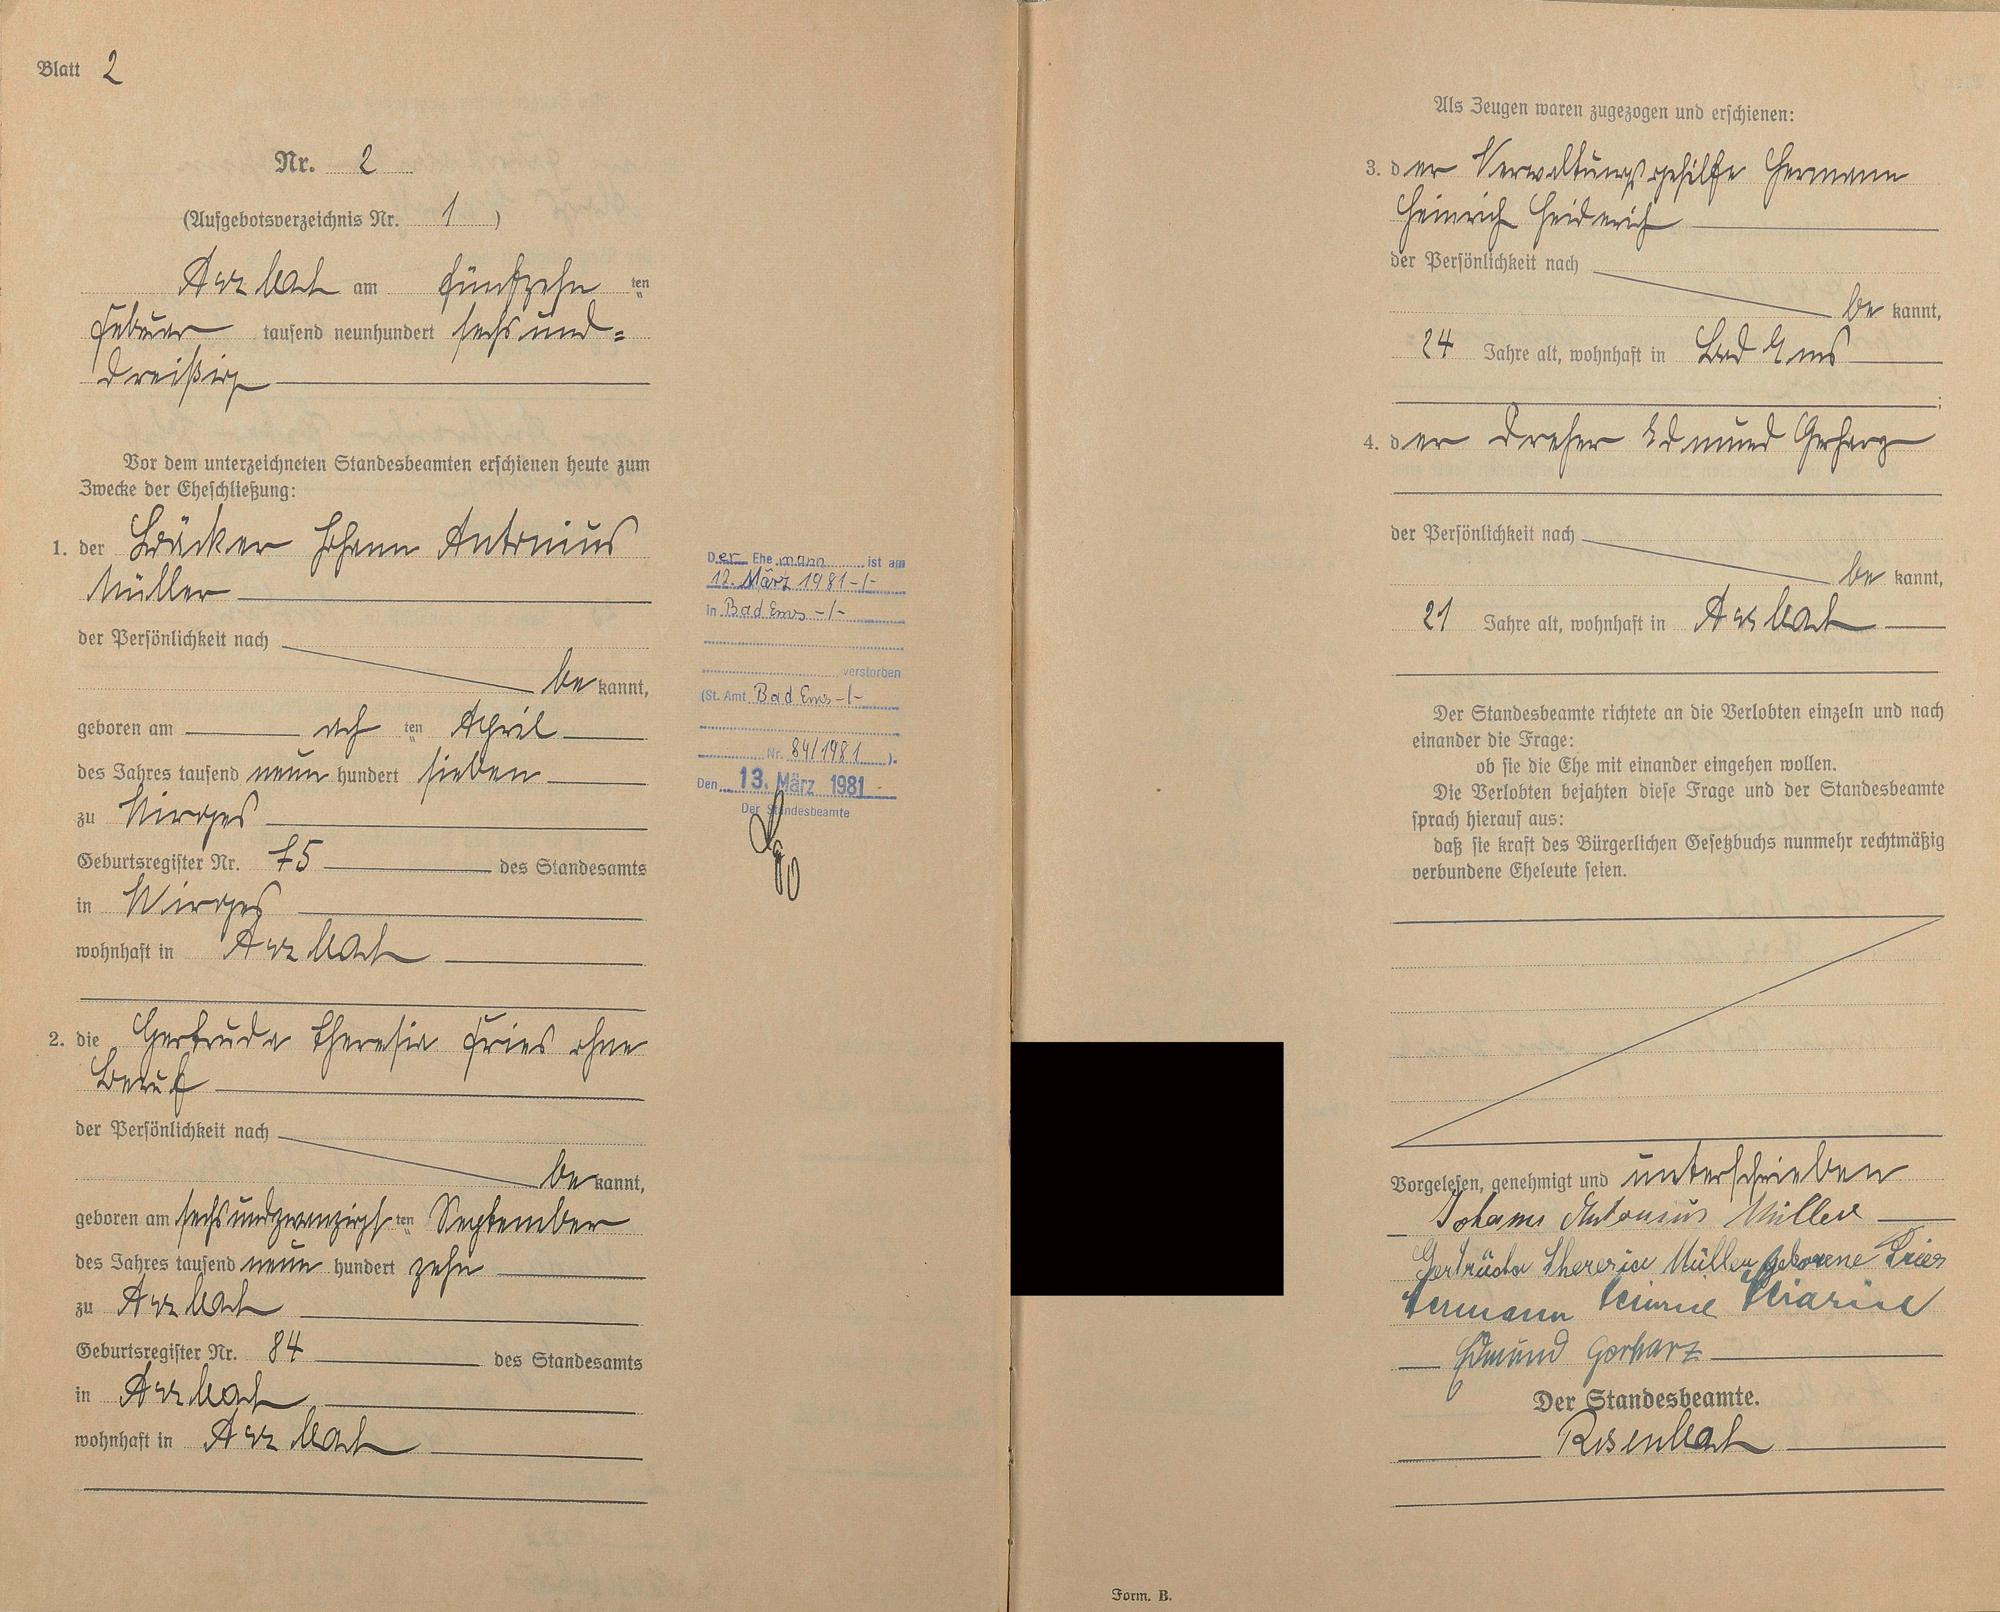 Blatt 2
Nr. 2
(Aufgebotsverzeichnis Nr. 1 )
Arzbach am fünfzehn ten
Februar tausend neunhundert sechsund=
dreißig
Vor dem unterzeichneten Standesbeamten erschienen heute zum
Zwecke der Eheschließung:
1. der Bäcker Johann Antonius
Müller
der Persönlichkeit nach
be kannt,
geboren am ach ten April
des Jahres tausend neun hundert sieben
zu Wirges
Geburtsregister Nr. 75 des Standesamts
in Wirges
wohnhaft in Arzbach
2. die Gertruda Theresia Fries ohne
Beruf
der Persönlichkeit nach
be kannt,
geboren am sechsundzwanzigst ten September
des Jahres tausend neun hundert zehn
zu Arzbach
Geburtsregister Nr. 84 des Standesamts
in Arzbach
wohnhaft in Arzbach
Der Ehemann ist am
12. März 1981-/-
in Bad Ems -/-
verstorben
(St. Amt Bad Ems -/-
Nr. 84/1981 ).
Den 13. März 1981
Der Standesbeamte
Als Zeugen waren zugezogen und erschienen:
3. der Verwaltungsgehilfe Hermann
Heinrich Heiderich
der Persönlichkeit nach
be kannt,
24 Jahre alt, wohnhaft in Bad Ems
;
4. der Dreher Edmund Gerharz
der Persönlichkeit nach
be kannt,
21 Jahre alt, wohnhaft in Arzbach
Der Standesbeamte richtete an die Verlobten einzeln und nach
einander die Frage:
ob sie die Ehe mit einander eingehen wollen.
Die Verlobten bejahten diese Frage und der Standesbeamte
sprach hierauf aus:
daß sie kraft des Bürgerlichen Gesetzbuchs nunmehr rechtmäßig
verbundene Eheleute seien.
Vorgelesen, genehmigt und unterschrieben
Johann Antonius Müller
Gertruda Theresia Müller geborene Fries
Hermann
Edmund Gerharz
Der Standesbeamte.
Rosenbach
Form. B.